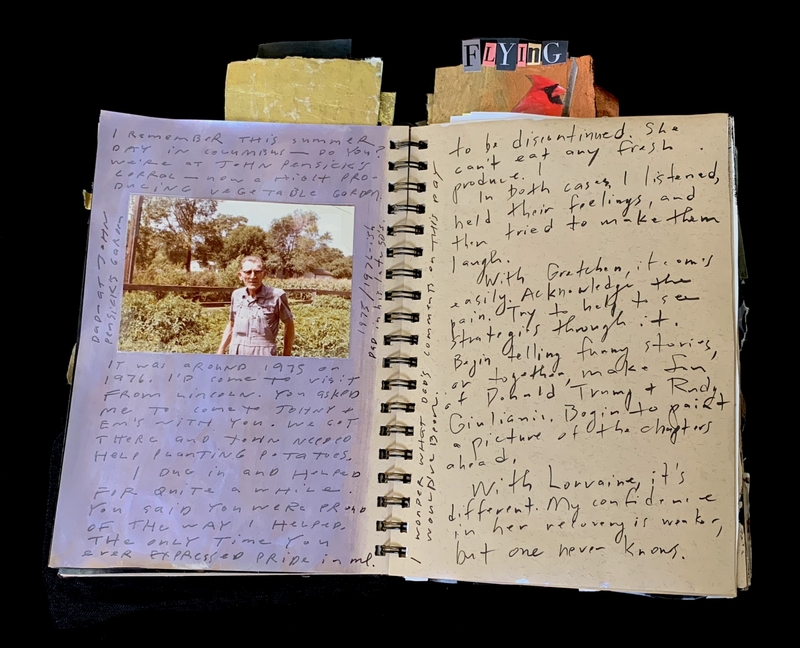 FLYING
I REMEMBER THIS SUMMER
DAY IN COLUMBUS — DO YOU?
WE'RE AT JOHN PENSICK'S
CORRAL — NOW A MIGHT PRO-
DUCING VEGETABLE GARDEN.
DAD AT JOHN
PENSICK'S FARM
1975/1976
DAD IN HIS
IT WAS AROUND 1975 OR
1976. I'D COME TO VISIT
FROM LINCOLN. YOU ASKED
ME TO COME TO JOHNY +
EM'S WITH YOU. WE GOT
THERE AND JOHN NEEDED
HELP PLANTING POTATOES.
I DUG IN AND HELPED
FOR QUITE A WHILE.
YOU SAID YOU WERE PROUD
OF THE WAY I HELPED.
THE ONLY TIME YOU
EVER EXPRESSED PRIDE in mE.
I WONDER WHAT DAD'S COMMENTS ON THIS DAY
WOULD'VE BEEN.
to be discontinued. She
can't eat any fresh
produce.
In both cases, I listened,
held their feelings, and
then tried to make them
laugh.
With Gretchen, it comes
easily. Acknowledge the
pain. Try to help to see
strategies through it.
Begin telling funny stories,
or together, make fun,
of Donald Trump + Rudy
Giuliani. Begin to paint
a picture of the chapters
ahead.
With Lorraine, it's
different. My confidence
in her recovery is weaker,
but one never knows.